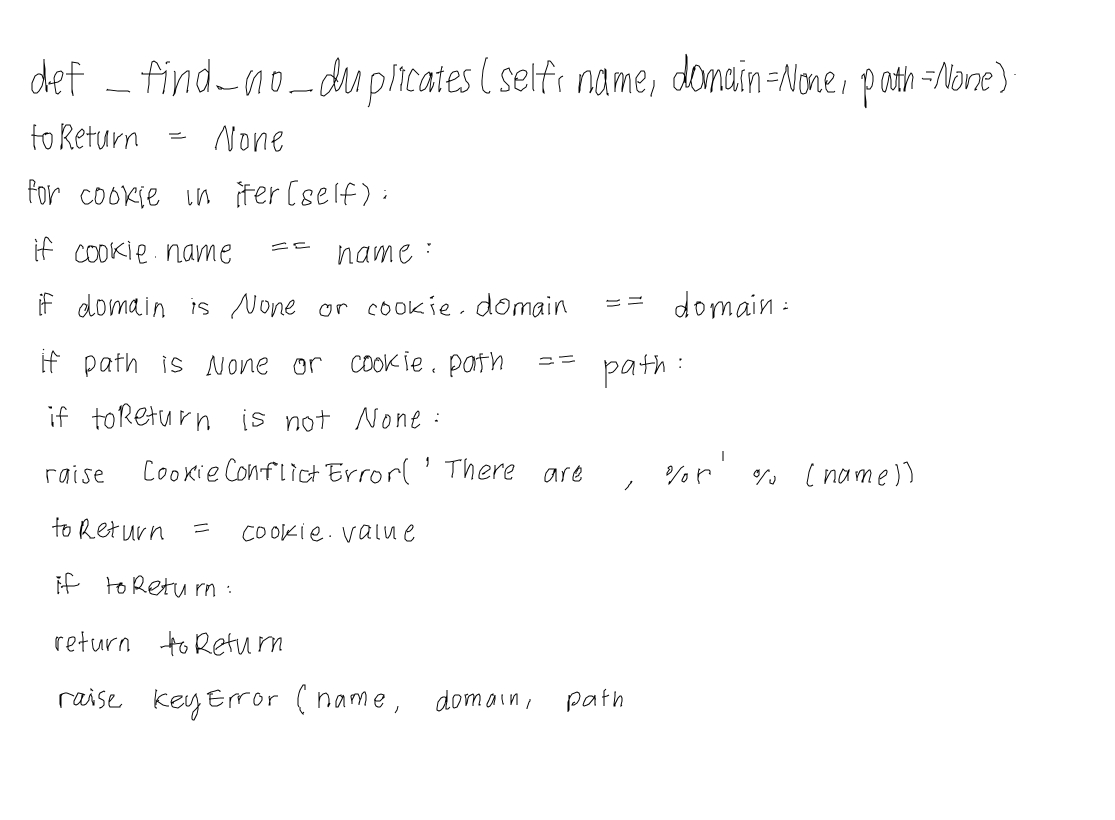 def _find_no_duplicates(self, name, domain=None, path=None)
toReturn = None
for cookie in iter(self):
if cookie.name == name:
if domain is None or cookie.domain == domain:
if path is None or cookie.path == path:
if toReturn is not None:
raise CookieConflictError('There are , %r' % (name))
toReturn = cookie.value
if toReturn:
return toReturn
raise keyError (name, domain, path